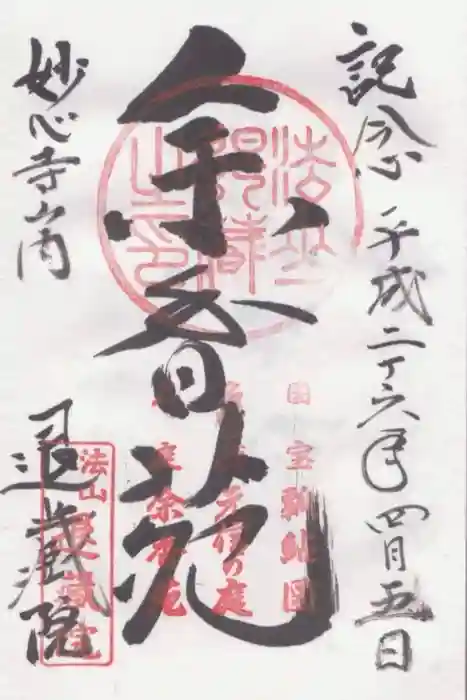 記念 平成二十六年四月五日
余香苑
妙心寺山内 退蔵院
国宝瓢鮎図
元信の庭
余香苑
法山退蔵院